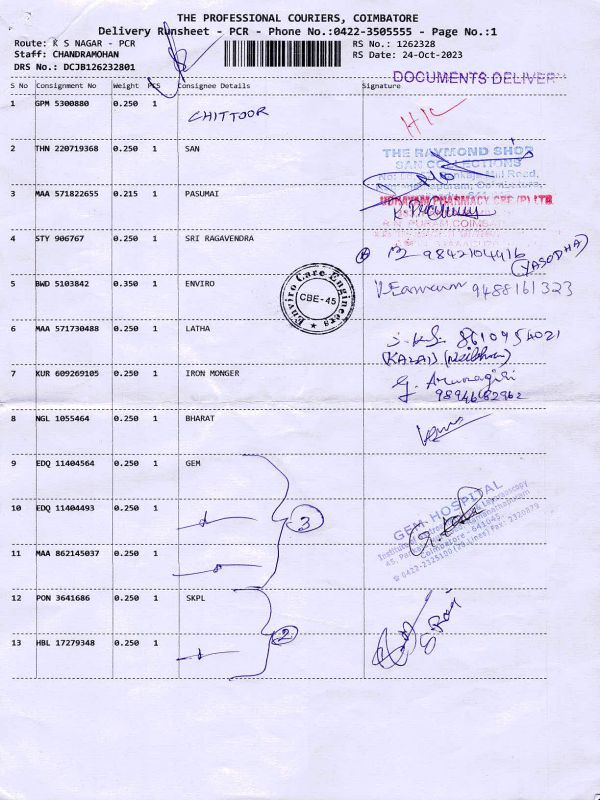 THE PROFESSIONAL COURIERS, COIMBATORE
Delivery Runsheet - PCR - Phone No.:0422-3505555 - Page No.:1
Route: K S NAGAR - PCR RS No.: 1262328
Staff: CHANDRAMOHAN RS Date: 24-Oct-2023
DRS No.: DCJB126232801
DOCUMENTS DELIVER
S No Consignment No Weight PCS Consignee Details Signature
1 GPM 5300880 0.250 1 CHITTOOR H/C
2 THN 220719368 0.250 1 SAN
THE RAYMOND SHOP
SAN COLLECTIONS
Mill Road,
3 MAA 571822655 0.215 1 PASUMAI
PHARMACY
4 STY 906767 0.250 1 SRI RAGAVENDRA 9842104416
(YASODHA)
5 BWD 5103842 0.350 1 ENVIRO 9488161323
Enviro Care Engineers
CBE-45
6 MAA 571730488 0.250 1 LATHA 8610954021
7 KUR 609269105 0.250 1 IRON MONGER
8 NGL 1055464 0.250 1 BHARAT
9 EDQ 11404564 0.250 1 GEM
GEM HOSPITAL
10 EDQ 11404493 0.250 1 3
45,
Coimbatore - 641045.
11 MAA 862145037 0.250 1
12 PON 3641686 0.250 1 SKPL
2
13 HBL 17279348 0.250 1